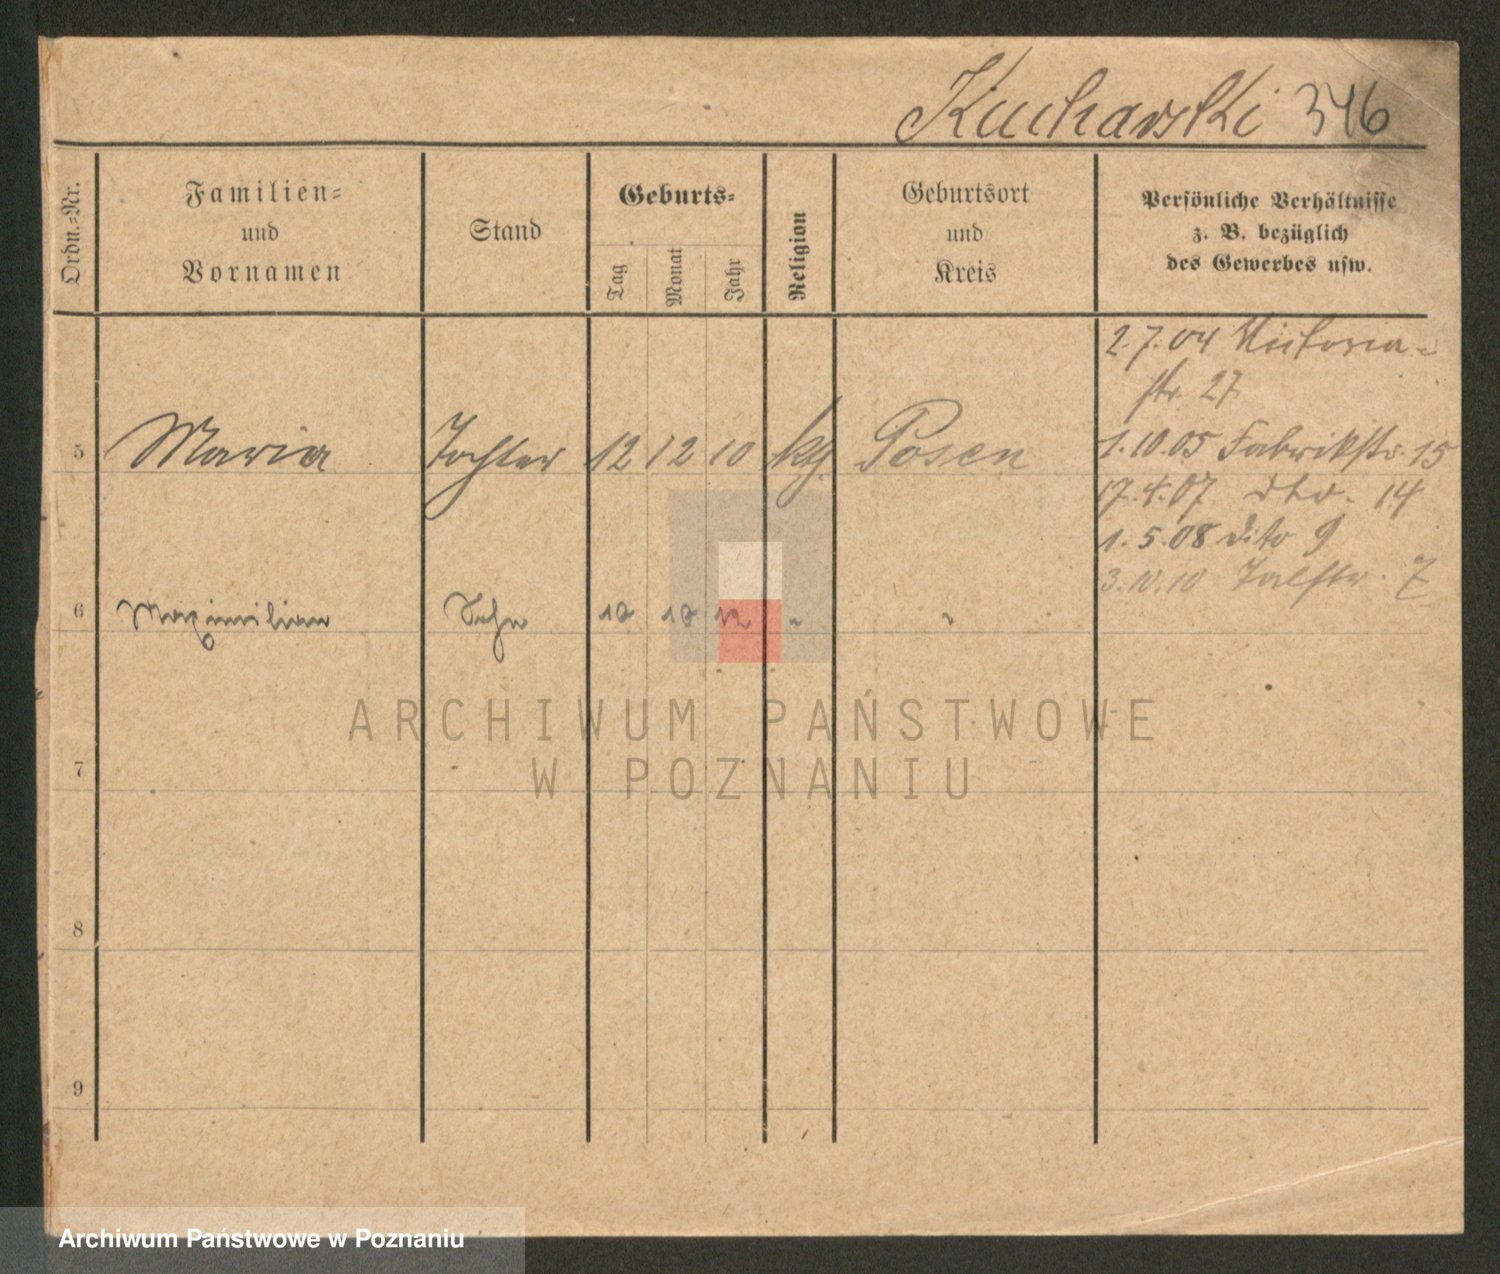 Kucharski 346
Ordn.=Nr.
Familien=
und
Vornamen
Stand
Geburts=
Tag
Monat
Jahr
Religion
Geburtsort
und
Kreis
Persönliche Verhältnisse
z. B. bezüglich
des Gewerbes usw.
2.7.04 Victoria=
str. 27
5 Maria Tochter 12 12 10 kth. Posen
1.10.05 Fabrikstr. 15
17.4.07 dto. 14
1.5.08 dito 9
3.10.10 Talstr. 7
6 Maximilian Sohn 10 10 12 " "
ARCHIWUM PAŃSTWOWE
W POZNANIU
7
8
9
Archiwum Państwowe w Poznaniu